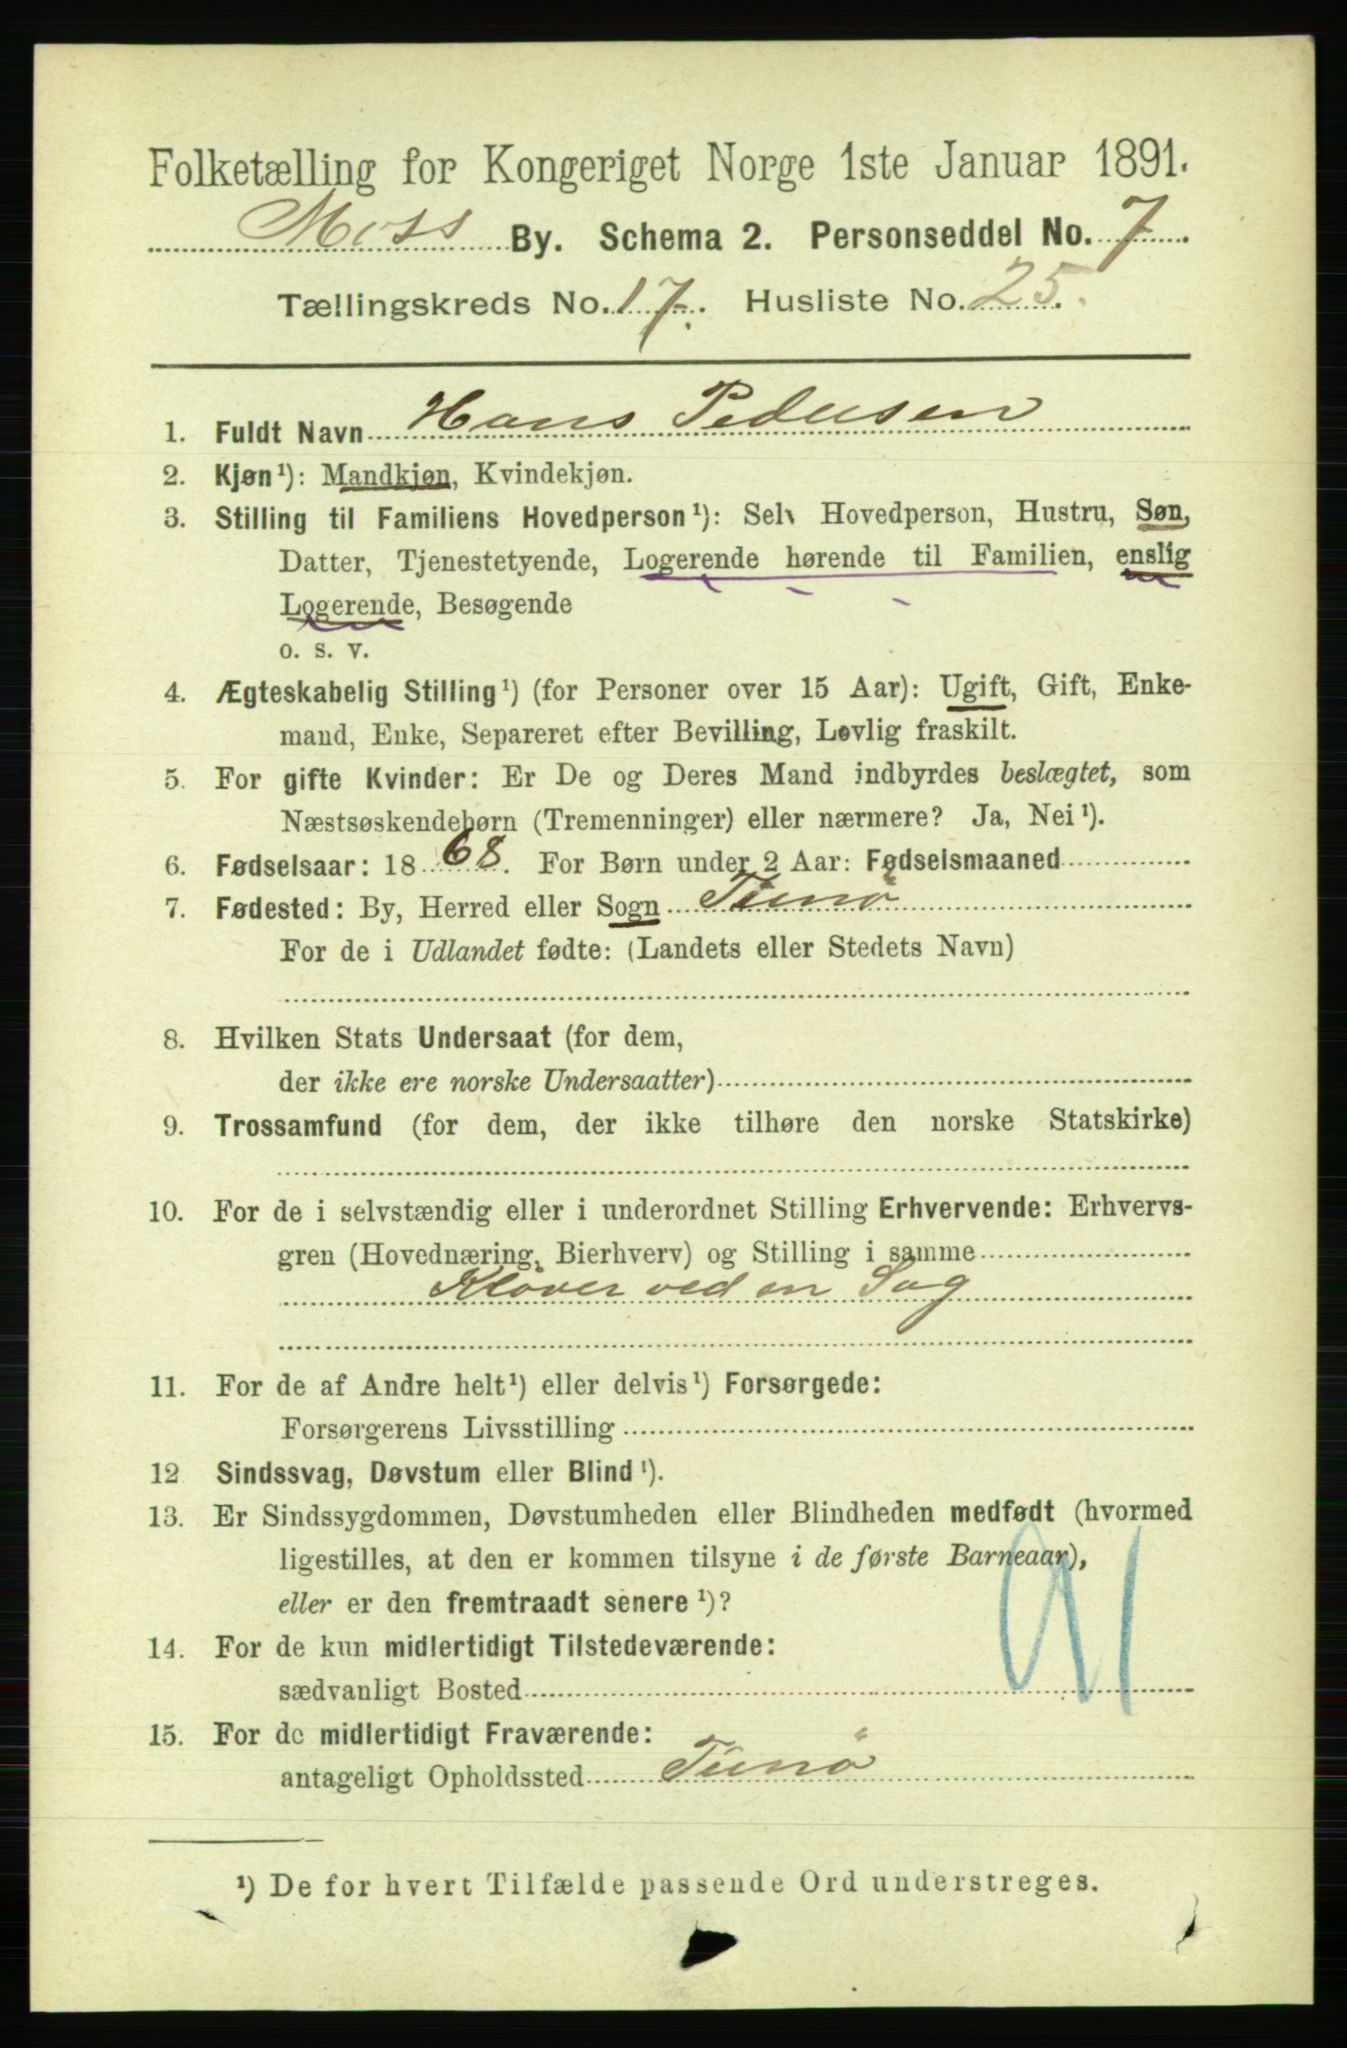 Folketælling for Kongeriget Norge 1ste Januar 1891.
Moss By. Schema 2. Personseddel No. 7
Tællingskreds No. 17. Husliste No. 25.
1. Fuldt Navn Hans Pedersen
2. Kjøn¹): Mandkjøn, Kvindekjøn.
3. Stilling til Familiens Hovedperson¹): Selv Hovedperson, Hustru, Søn,
Datter, Tjenestetyende, Logerende hørende til Familien, enslig
Logerende, Besøgende
o. s. v.
4. Ægteskabelig Stilling¹) (for Personer over 15 Aar): Ugift, Gift, Enke-
mand, Enke, Separeret efter Bevilling, Lovlig fraskilt.
5. For gifte Kvinder: Er De og Deres Mand indbyrdes beslægtet, som
Næstsøskendebørn (Tremenninger) eller nærmere? Ja, Nei¹).
6. Fødselsaar: 1868. For Børn under 2 Aar: Fødselsmaaned
7. Fødested: By, Herred eller Sogn Tunø
For de i Udlandet fødte: (Landets eller Stedets Navn)
8. Hvilken Stats Undersaat (for dem,
der ikke ere norske Undersaatter)
9. Trossamfund (for dem, der ikke tilhøre den norske Statskirke)
10. For de i selvstændig eller i underordnet Stilling Erhvervende: Erhvervs-
gren (Hovednæring, Bierhverv) og Stilling i samme
Kløver ved en Sag
11. For de af Andre helt¹) eller delvis¹) Forsørgede:
Forsørgerens Livsstilling
12 Sindssvag, Døvstum eller Blind¹).
13. Er Sindssygdommen, Døvstumheden eller Blindheden medfødt (hvormed
ligestilles, at den er kommen tilsyne i de første Barneaar),
eller er den fremtraadt senere¹)?
91
14. For de kun midlertidigt Tilstedeværende:
sædvanligt Bosted
15. For de midlertidigt Fraværende:
antageligt Opholdssted Tunø
¹) De for hvert Tilfælde passende Ord understreges.